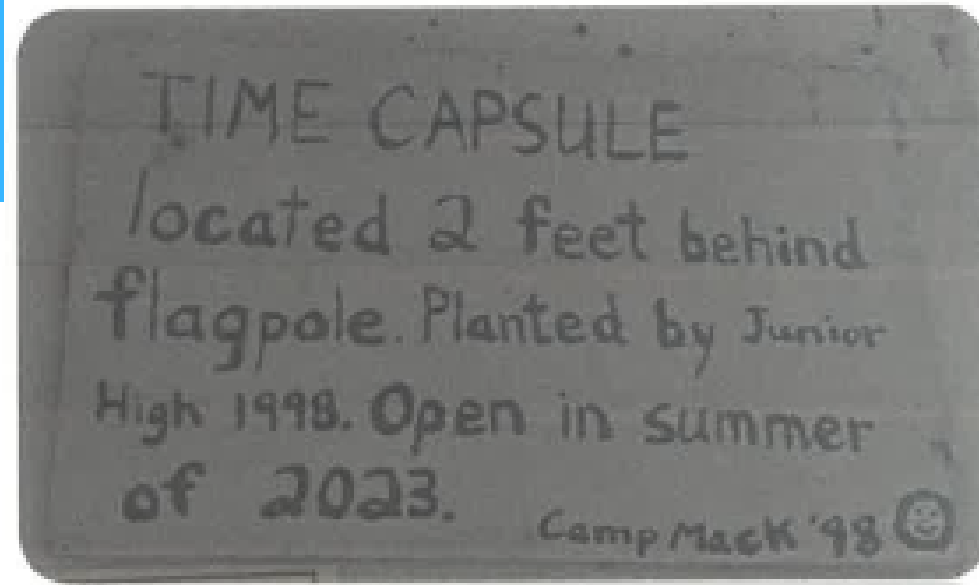 TIME CAPSULE
located 2 feet behind
flagpole. Planted by Junior
High 1998. Open in summer
of 2023.
Camp Mack '98